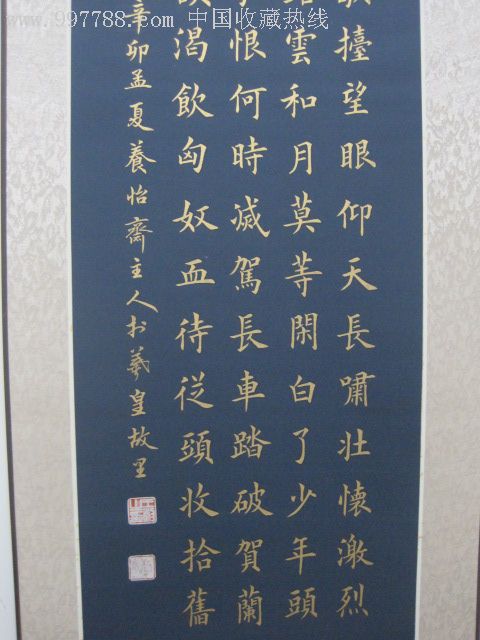 www.997788.com 中国收藏热线
擡望眼仰天長嘯壮懷激烈
雲和月莫等閑白了少年頭
恨何時滅駕長車踏破賀蘭
渴飲匈奴血待從頭收拾舊
辛卯孟夏養怡齋主人扵羲皇故里